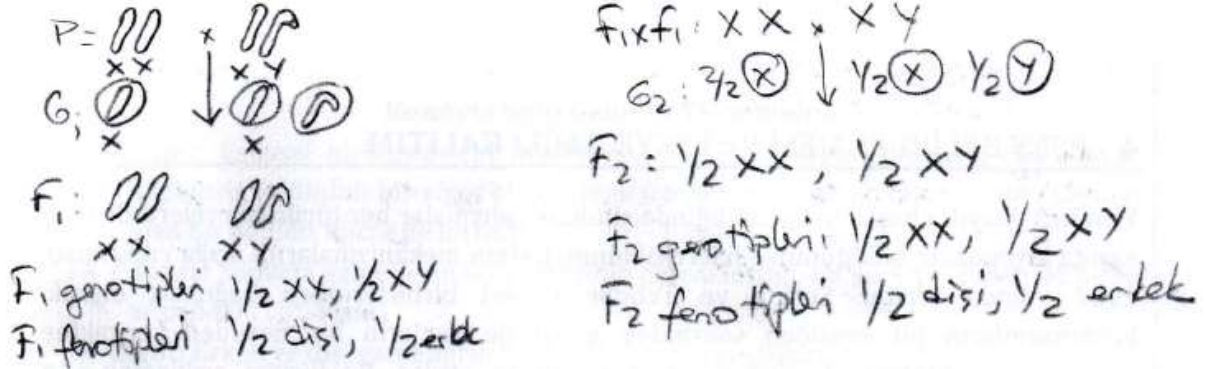 P= x
x x x y
G1
x x
F1:
x x x y
F1 genotipleri 1/2 xx, 1/2 xy
F1 fenotipleri 1/2 dişi, 1/2 erkek
F1xF1: x x x x y
G2: 2/2 x 1/2 x 1/2 y
F2: 1/2 xx, 1/2 xy
F2 genotipleri 1/2 xx, 1/2 xy
F2 fenotipleri 1/2 dişi, 1/2 erkek